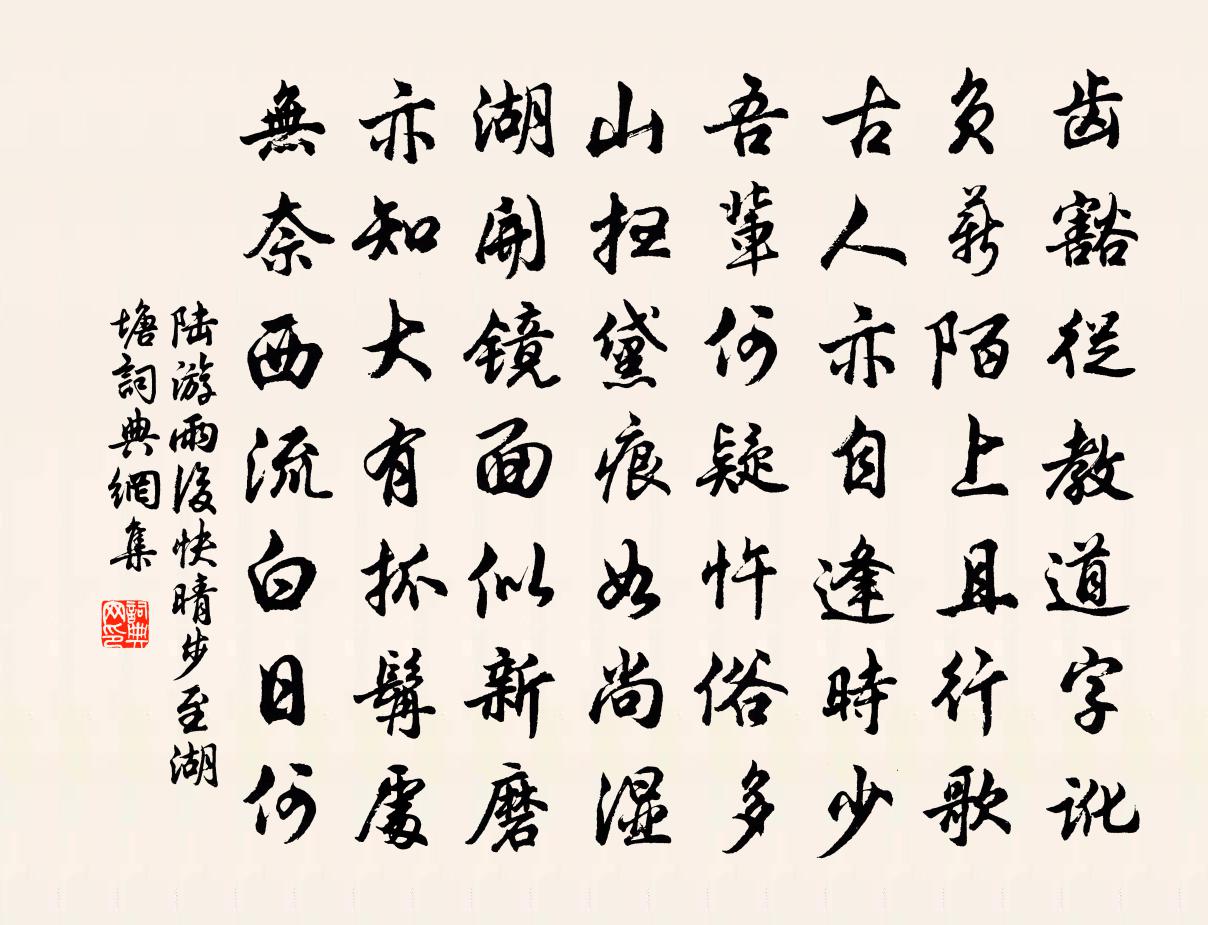 齿豁從教道字訛
負薪陌上且行歌
古人亦自逢時少
吾輩何疑忤俗多
山掃黛痕如尚濕
湖開鏡面似新磨
亦知大有抓髯處
無奈西流白日何
陸游雨後快晴步至湖
塘詞典網集
詞典
网印